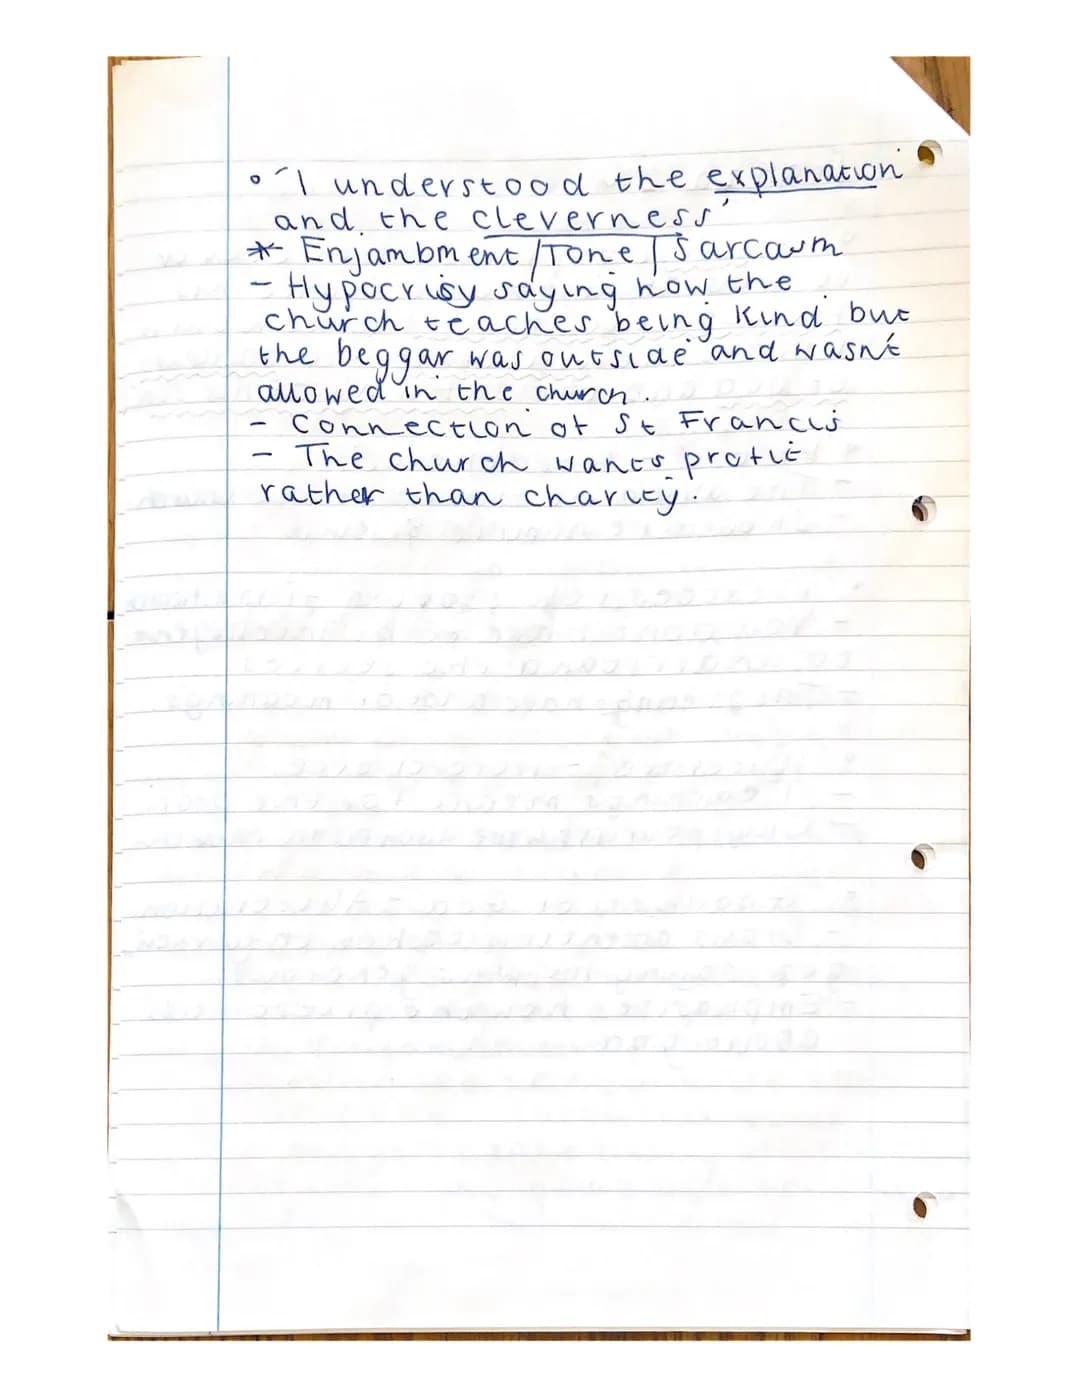 • 'I understood the explanation
and the cleverness'
* Enjambment / Tone / Sarcasm
- Hypocrisy saying how the
church teaches being kind but
the beggar was outside and wasn't
allowed in the church.
- Connection of St Francis
- The church wants profit
rather than charity.